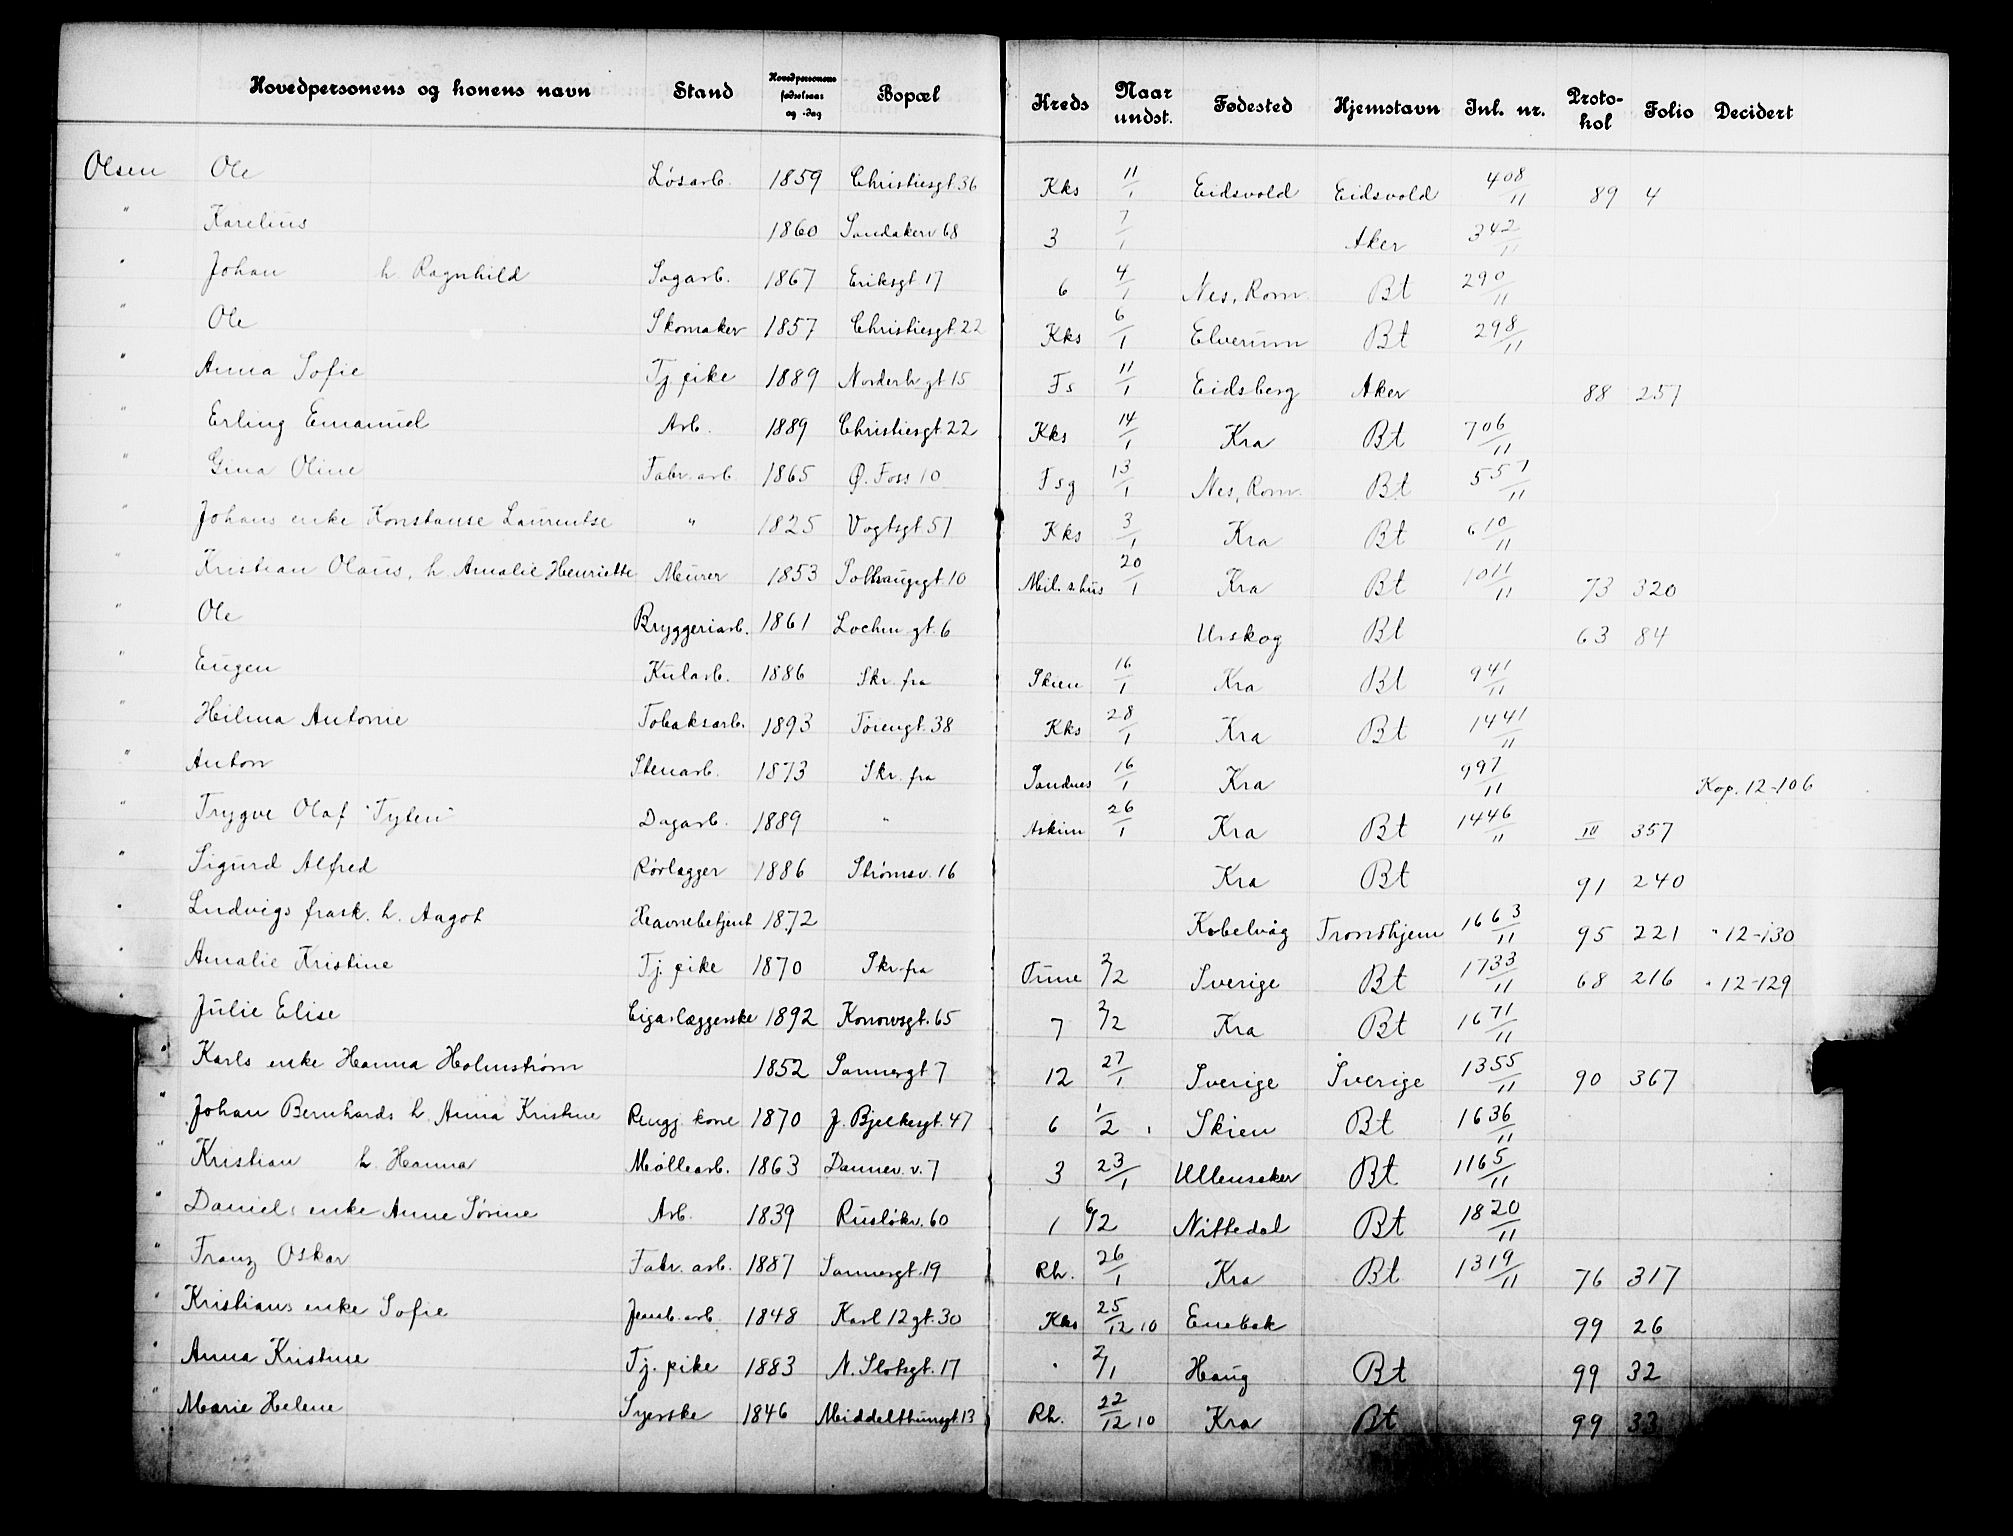 Hovedpersonens og konens navn Stand Hovedpersonens fødselsaar og -dag Bopæl Kreds Naar undst. Fødested Hjemstavn Inl. nr. Protokol Folio Decidert
Olsen Ole Løsarb. 1859 Christiesgt. 36 Kks 11/1 Eidsvold Eidsvold 408/11 89 4
" Karelius 1860 Sandakerv 68 3 7/1 Aker 342/11
" Johan h. Ragnhild Sagarb. 1867 Eriksgt 17 6 4/1 Nes, Rom. Bt 290/11
" Ole Skomaker 1857 Christiesgt. 22 Kks 6/1 Elverum Bt 298/11
" Anna Sofie Tj. pike 1889 Norderh. gt 15 Fs 11/1 Eidsberg Aker 88 257
" Erling Emanuel Arb. 1889 Christiesgt 22 Kks 14/1 Kra Bt 706/11
" Gina Oline Fabr. arb. 1865 Ø. Foss 10 Fsg 13/1 Nes, Rom. Bt 557/11
" Johans enke Konstanse Laurentse " 1825 Vogtsgt 57 Kks 3/1 Kra Bt 610/11
" Kristian Olaus, h. Amalie Henriette Meurer 1853 Solhauggt. 10 Mil. s.hus 20/1 Kra Bt 1011/11 73 320
" Ole Bryggeriarb. 1861 Lochen gt. 6 Urskog Bt 63 84
" Eugen Kularb. 1886 Skr. fra Skien 16/1 Kra Bt 941/11
" Hilma Antonie Tobaksarb. 1893 Tøiengt. 38 Kks 28/1 Kra Bt 1441/11
" Anton Stenarb. 1873 Skr. fra Sandnes 16/1 Kra 997/11 Kop. 12-106
" Trygve Olaf "Tyten" Dagarb. 1889 " Askim 26/1 Kra Bt 1446/11 III 357
" Sigurd Alfred Rørlægger 1886 Strømsv. 16 Kra Bt 91 240
" Ludvigs frask. h. Aagot Havnebetjent 1872 Kabelvåg Trondhjem 1663/11 95 221 " 12-130
" Amalie Kristine Tj. pike 1870 Skr. fra Tune 2/2 Sverige Bt 1733/11 68 216 " 12-129
" Julie Elise Cigarlæggerske 1892 Konowsgt. 65 7 2/2 Kra Bt 1671/11
" Karls enke Hanna Holmstrøm 1852 Sannergt 7 12 27/1 Sverige Sverige 1355/11 90 367
" Johan Bernhards h. Anna Kristine Rengj. kone 1870 J. Bjelkesgt. 47 6 1/2 Skien Bt 1636/11
" Kristian h. Hanna Møllearb. 1863 Dannev. v. 7 3 23/1 Ullensaker Bt 1165/11
" Daniels enke Anne Sørine Arb. 1839 Ruseløkv. 60 1 6/2 Nittedal Bt 1820/11
" Franz Oskar Fabr. arb. 1887 Sannergt. 19 Rh. 26/1 Kra Bt 1319/11 76 317
" Kristians enke Sofie Jernb. arb. 1848 Karl 12 gt. 30 Kks 25/12 10 Enebak 99 26
" Anna Kristine Tj. pike 1883 N. Slotsgt. 17 " 2/1 Haug Bt 99 32
" Marie Helene Syerske 1846 Middelthunsgt. 13 Rh. 22/12 10 Kra Bt 99 33